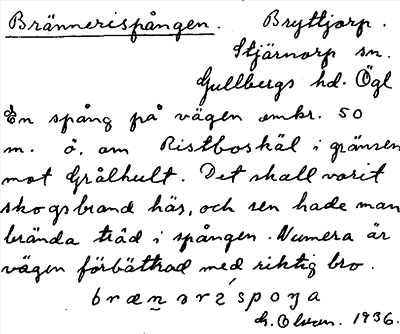 Brännerispången. Bryttjorp.
Stjärnorp sn.
Gullbergs hd. Ögl
En spång på vägen omkr. 50
m. ö. om Ristboskäl i gränsen
mot Grålhult. Det skall varit
skogsbrand här, och sen hade man
brända träd i spången. Numera är
vägen förbättrad med riktig bro.
G. Olson. 1936.